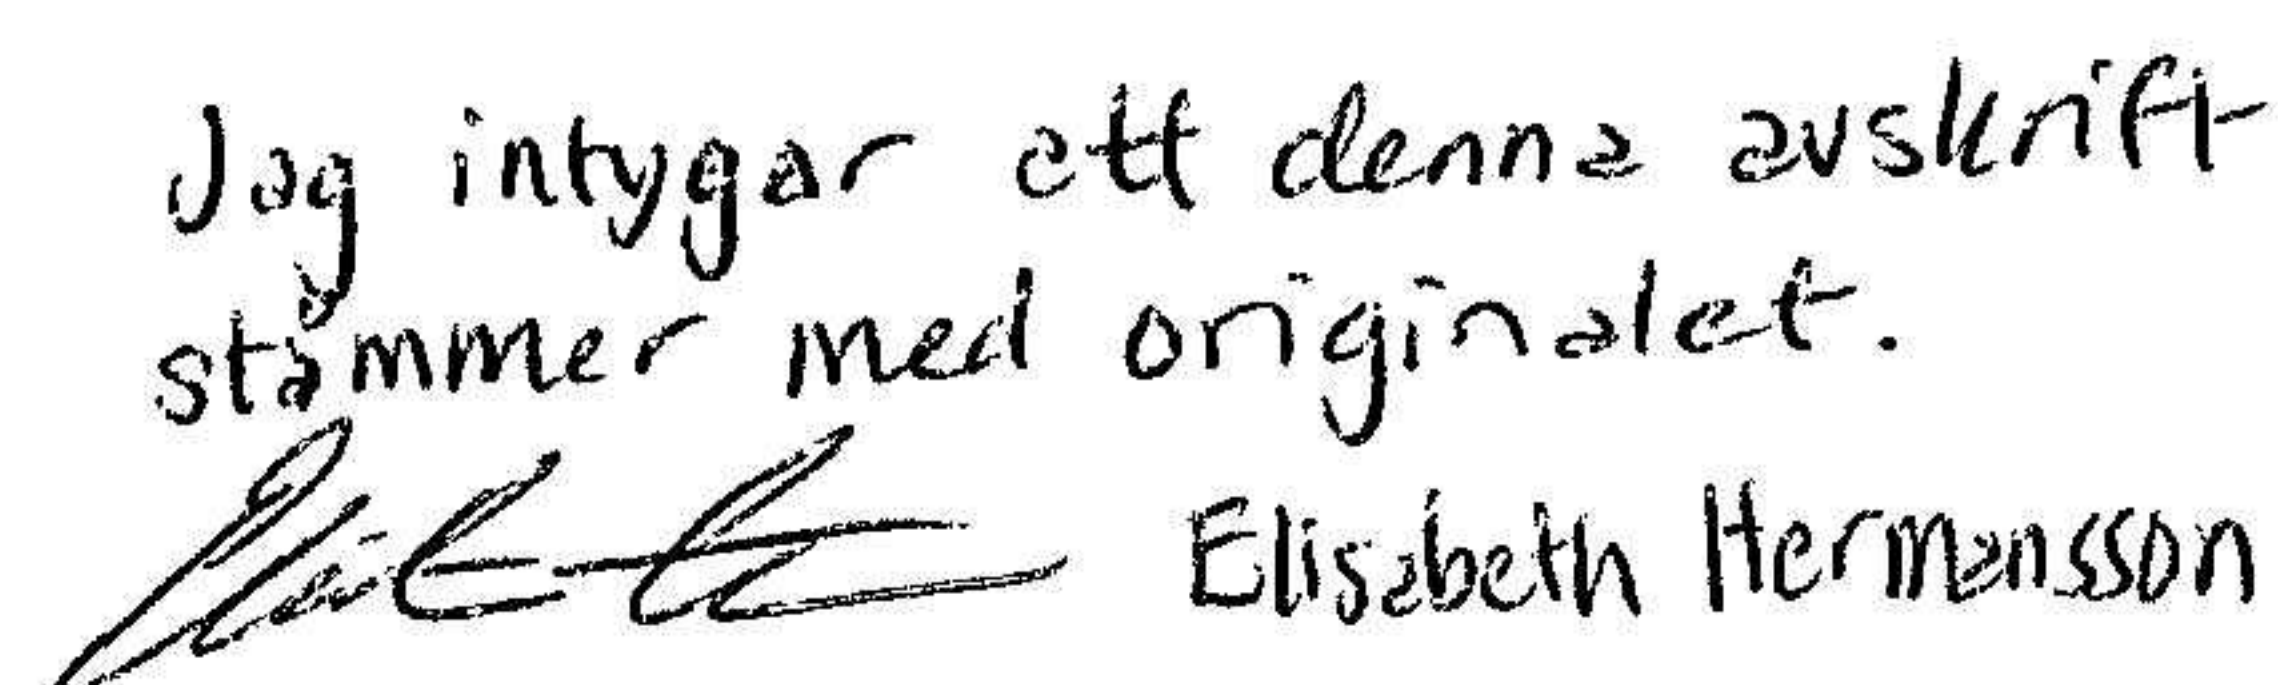 Jag intygar att denna avskrift
stämmer med originalet.
Elisabeth Hermansson